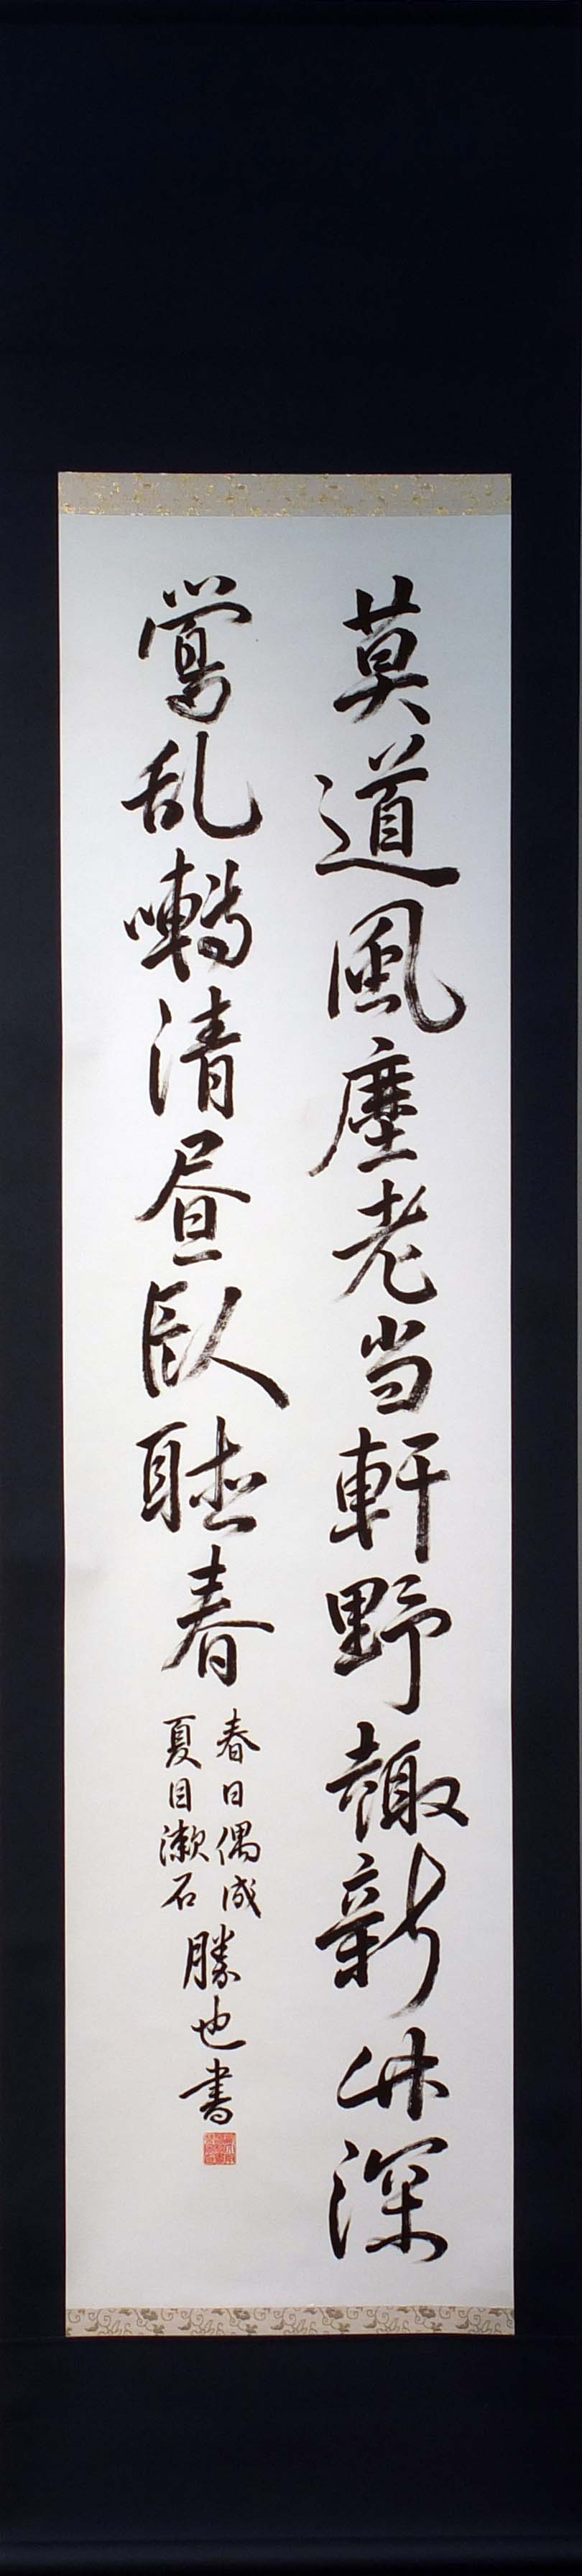 莫道風塵老当軒野趣新竹深
鶯乱囀清昼臥聴春
春日偶成
夏目漱石
勝也書